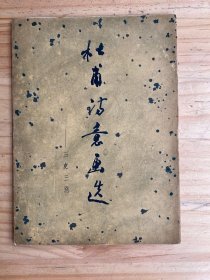 杜甫诗意画选